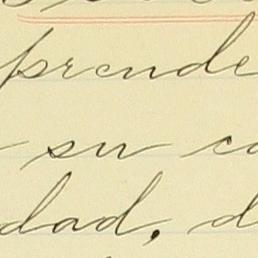 prende
su co
dad, d